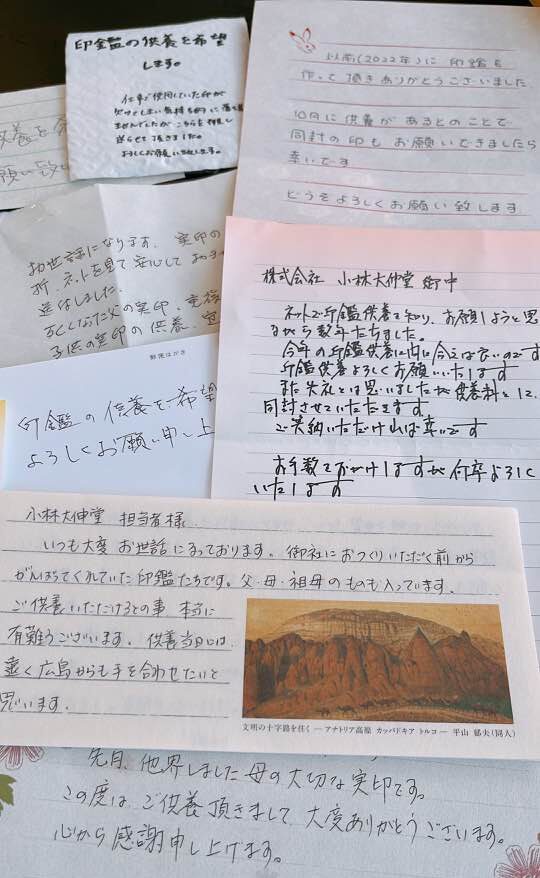 印鑑の供養を希望
します。
仕事で使用していた印が
よろしくお願い致します。
以前(2022年)に 印鑑を
作って頂きありがとうございました
10月に供養が あるとのことで
同封の印も お願いできましたら
幸いです
どうぞよろしくお願い致します
お世話になります。実印の
折、ネットを見て安心して
送付しました。
亡くなった父の実印、
子供の実印の供養、
株式会社 小林大伸堂 御中
ネットで印鑑供養を知り、お願いしようと思
てから数年たちました。
今年の印鑑供養に間に合えば良いのです
印鑑供養よろしくお願いいたします
また失礼とは思いましたが供養料として、
同封させていただきます。
ご笑納いただければ幸いです
お手数をおかけしますが何卒よろしく
いたします
郵便はがき
印鑑の供養を希望
よろしくお願い申し上
小林大伸堂 担当者様
いつも大変お世話になっております。御社におつくりいただく前から
がんばってくれていた印鑑たちです。父・母・祖母のものも入っています。
ご供養いただけるとの事 本当に
有難うございます。供養当日には、
遠く広島からも手を合わせたいと
思います。
文明の十字路を往く ― アナトリア高原 カッパドキア トルコ ― 平山 郁夫(同人)
先月、他界しました母の大切な実印です。
この度は、ご供養頂きまして、大変ありがとうございます。
心から感謝申し上げます。